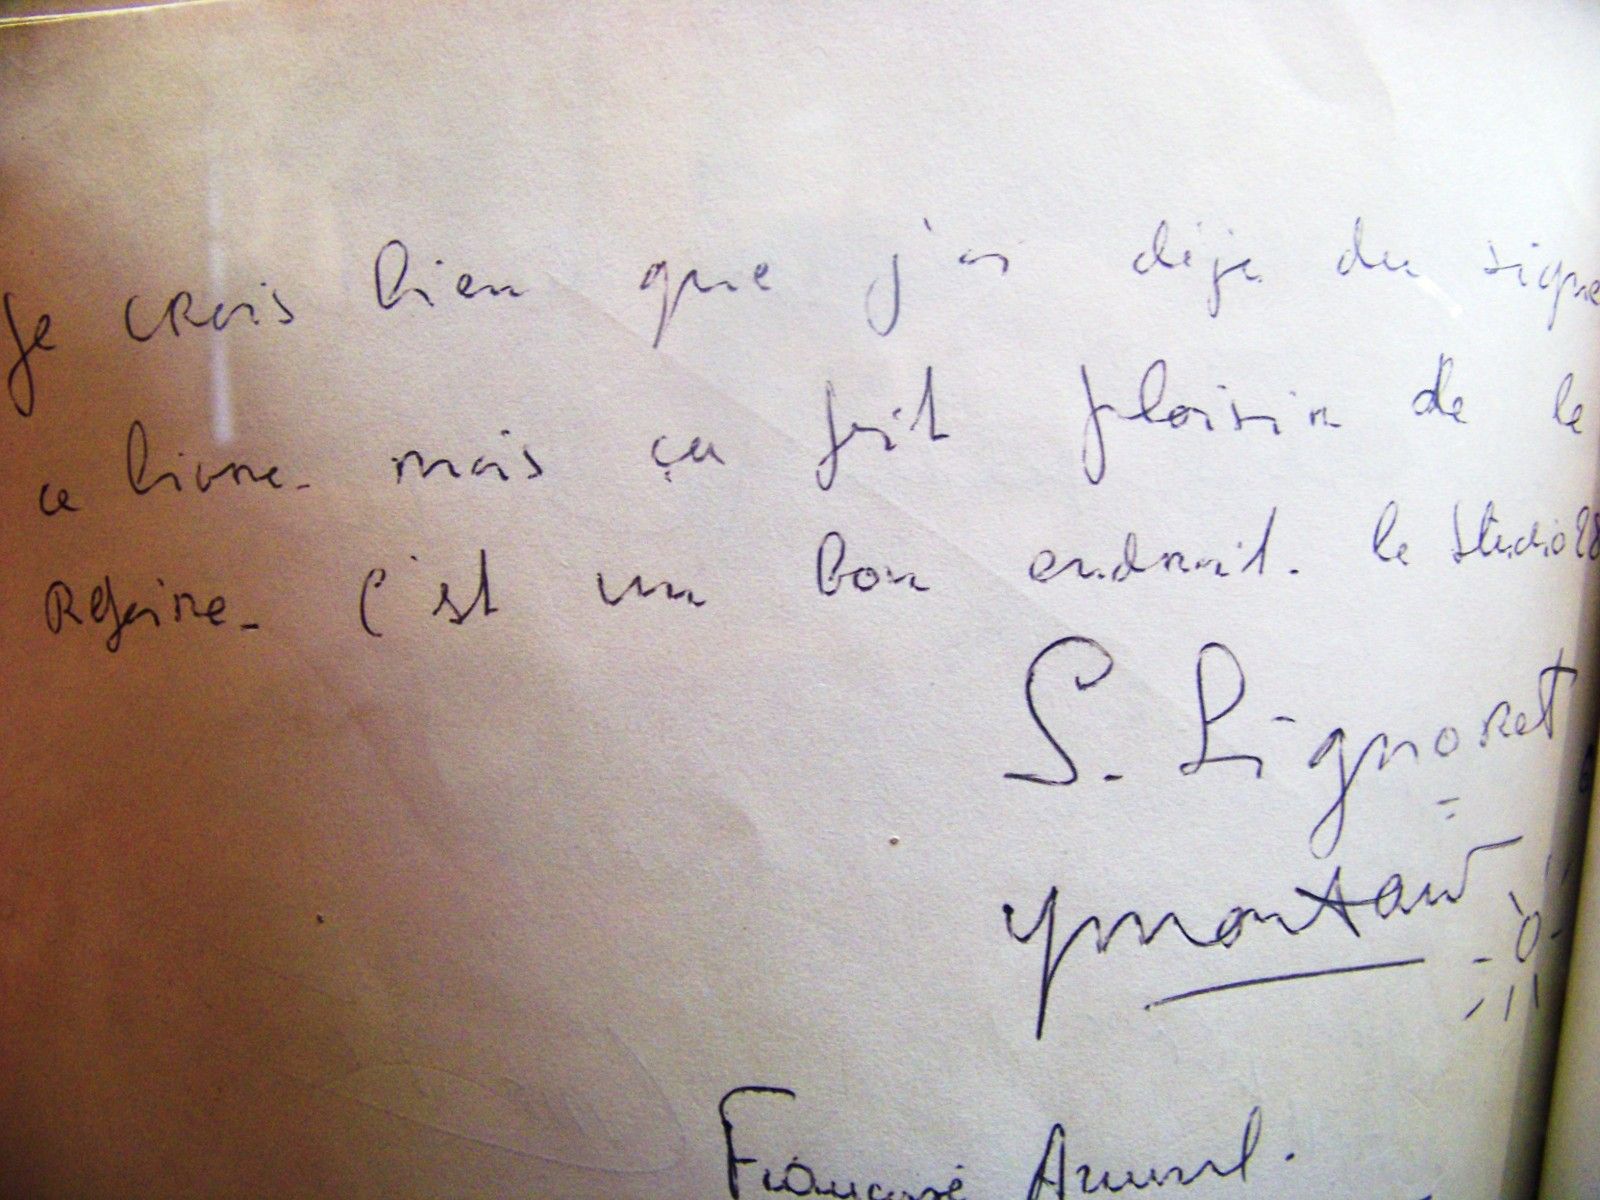 Je crois bien que j'ai déja du signe
ce livre - mais ça fait plaisir de le
Refaire - C'est un bon endroit. le Studio 28
S. Signoret
ymontand
Françoise Arnoul.